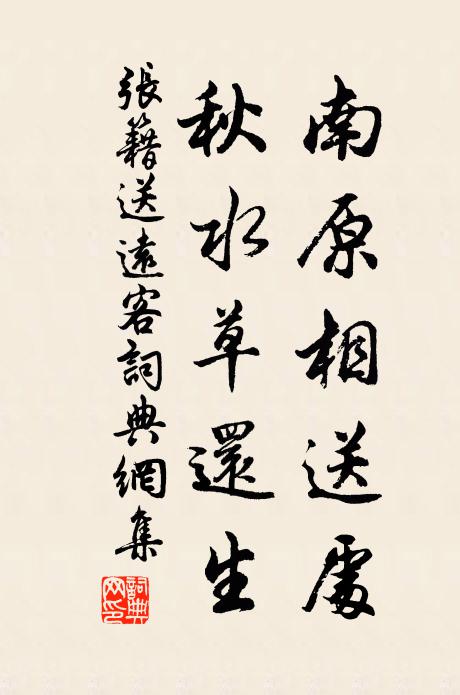 南原相送處
秋水草還生
張籍送遠客詞典網集
詞典網印